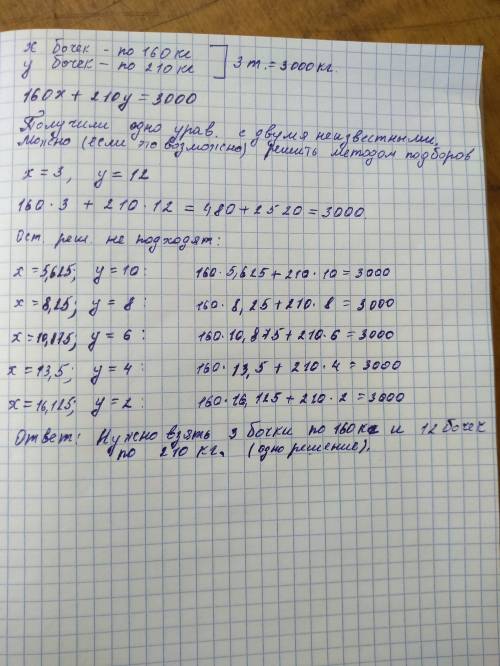 x бочек - по 160 кг
y бочек - по 210 кг ] 3 т. = 3000 кг.
160x + 210y = 3000
Получили одно урав. с двумя неизвестными.
Можно (если это возможно) решить методом подборов
x = 3, y = 12
160 · 3 + 210 · 12 = 480 + 2520 = 3000.
Ост. реш. не подходят:
x = 5,625; y = 10: 160 · 5,625 + 210 · 10 = 3000
x = 8,25; y = 8: 160 · 8,25 + 210 · 8 = 3000
x = 10,875; y = 6: 160 · 10,875 + 210 · 6 = 3000
x = 13,5; y = 4: 160 · 13,5 + 210 · 4 = 3000
x = 16,125; y = 2: 160 · 16,125 + 210 · 2 = 3000
Ответ: Нужно взять 3 бочки по 160 кг и 12 бочек
по 210 кг. (одно решение).